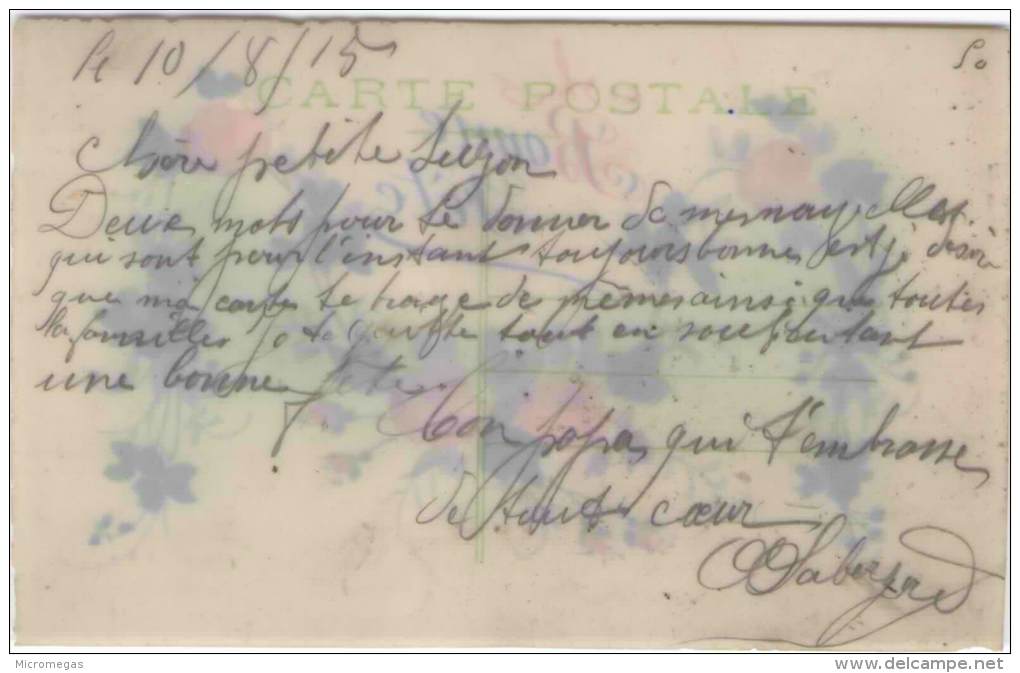 Le 10/8/15
50
CARTE POSTALE
Bonne
Chère petite Suzon
Deux mots pour te donner de mes nouvelles
qui sont pour l'instant toujours bonnes et je désire
que ma carte te trouve de mêmes ainsi que toutes
la familles je te quitte tout en souhaitant
une bonne fête
Ton papa qui t'embrasse
de tout cœur
Micromegas
www.delcampe.net